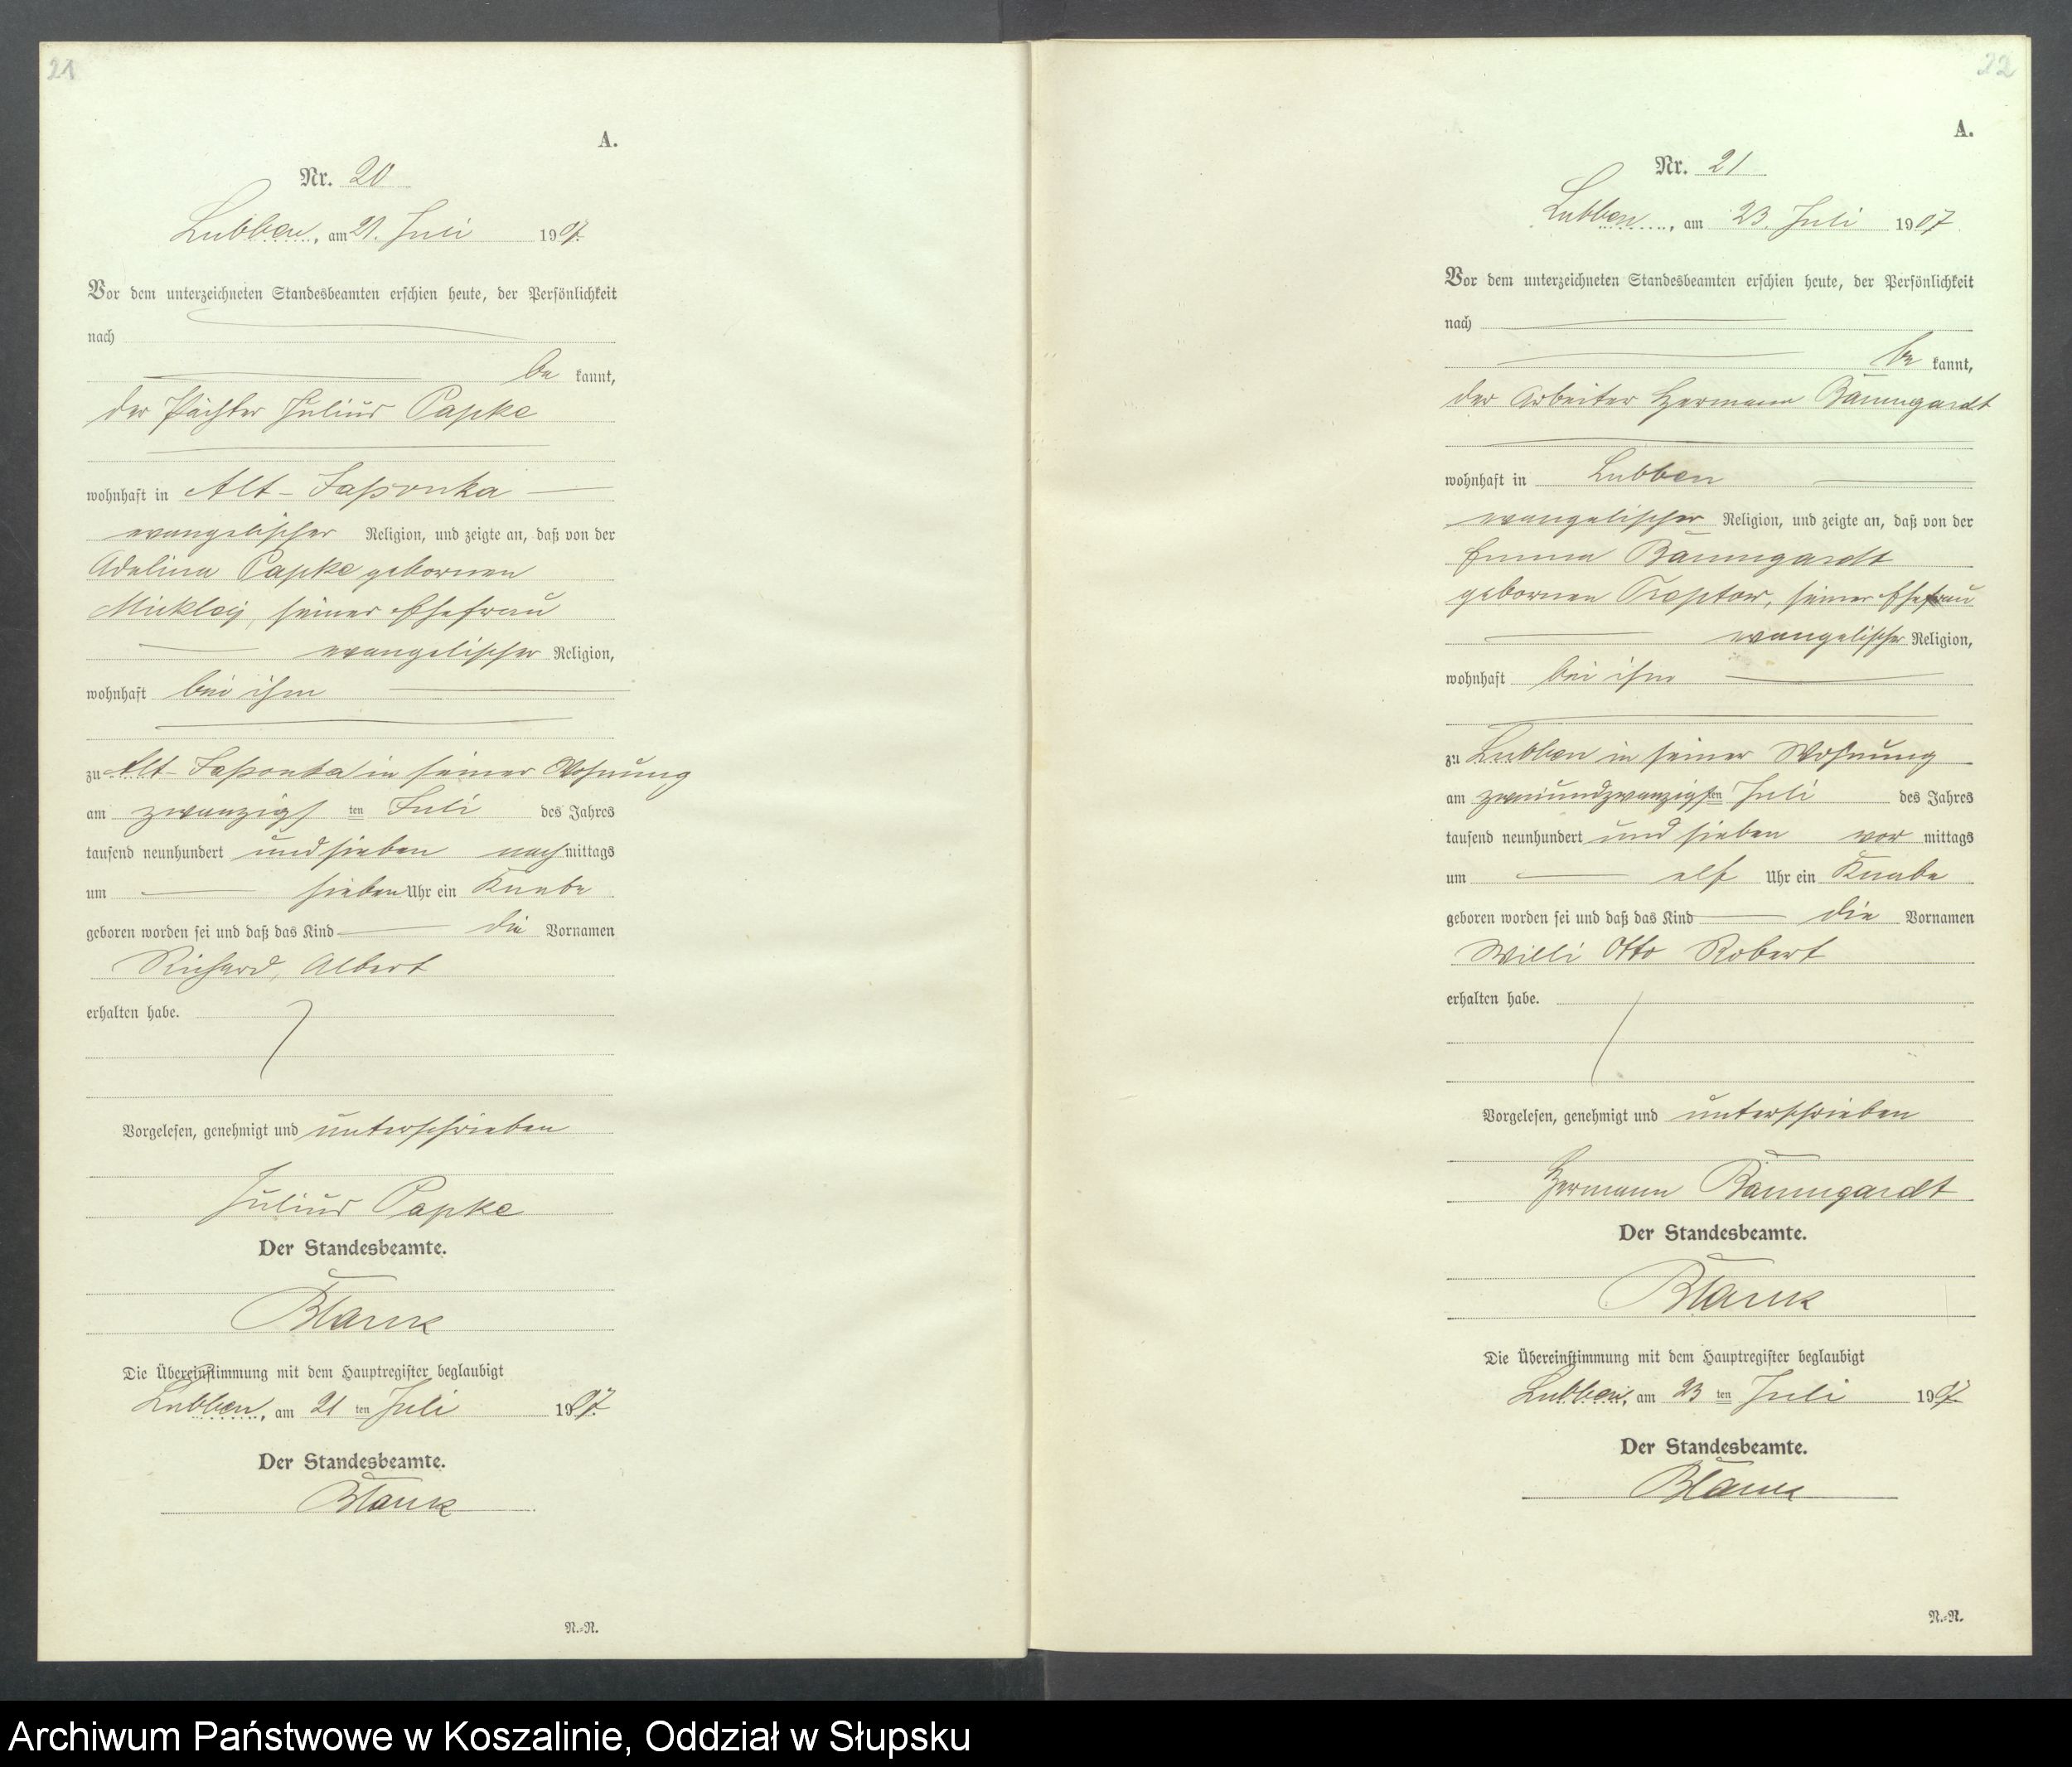 21
A.
Nr. 20
Lubben, am 21. Juli 1907.
Vor dem unterzeichneten Standesbeamten erschien heute, der Persönlichkeit
nach
be kannt,
der Pächter Julius Papke
wohnhaft in Alt-Jaßonka
evangelischer Religion, und zeigte an, daß von der
Adeline Papke gebornen
seiner Ehefrau
evangelischer Religion,
wohnhaft bei ihm
zu Alt-Jaßonka in seiner Wohnung
am zwanzigsten Juli des Jahres
tausend neunhundert und sieben nachmittags
um sieben Uhr ein Knabe
geboren worden sei und daß das Kind die Vornamen
Richard, Albert
erhalten habe.
Vorgelesen, genehmigt und unterschrieben
Julius Papke
Der Standesbeamte.
Blanck
Die Übereinstimmung mit dem Hauptregister beglaubigt
Lubben, am 21 ten Juli 1907.
Der Standesbeamte.
Blanck
N.-N.
22
A.
Nr. 21
Lubben, am 23. Juli 1907.
Vor dem unterzeichneten Standesbeamten erschien heute, der Persönlichkeit
nach
be kannt,
der Arbeiter Hermann Baumgardt
wohnhaft in Lubben
evangelischer Religion, und zeigte an, daß von der
Emma Baumgardt
gebornen Treptow, seiner Ehefrau
evangelischer Religion,
wohnhaft bei ihm
zu Lubben in seiner Wohnung
am zweiundzwanzigsten Juli des Jahres
tausend neunhundert und sieben vor mittags
um elf Uhr ein Knabe
geboren worden sei und daß das Kind die Vornamen
Willi Otto Robert
erhalten habe.
Vorgelesen, genehmigt und unterschrieben
Hermann Baumgardt
Der Standesbeamte.
Blanck
Die Übereinstimmung mit dem Hauptregister beglaubigt
Lubben, am 23 ten Juli 1907.
Der Standesbeamte.
Blanck
N.-N.
Archiwum Państwowe w Koszalinie, Oddział w Słupsku